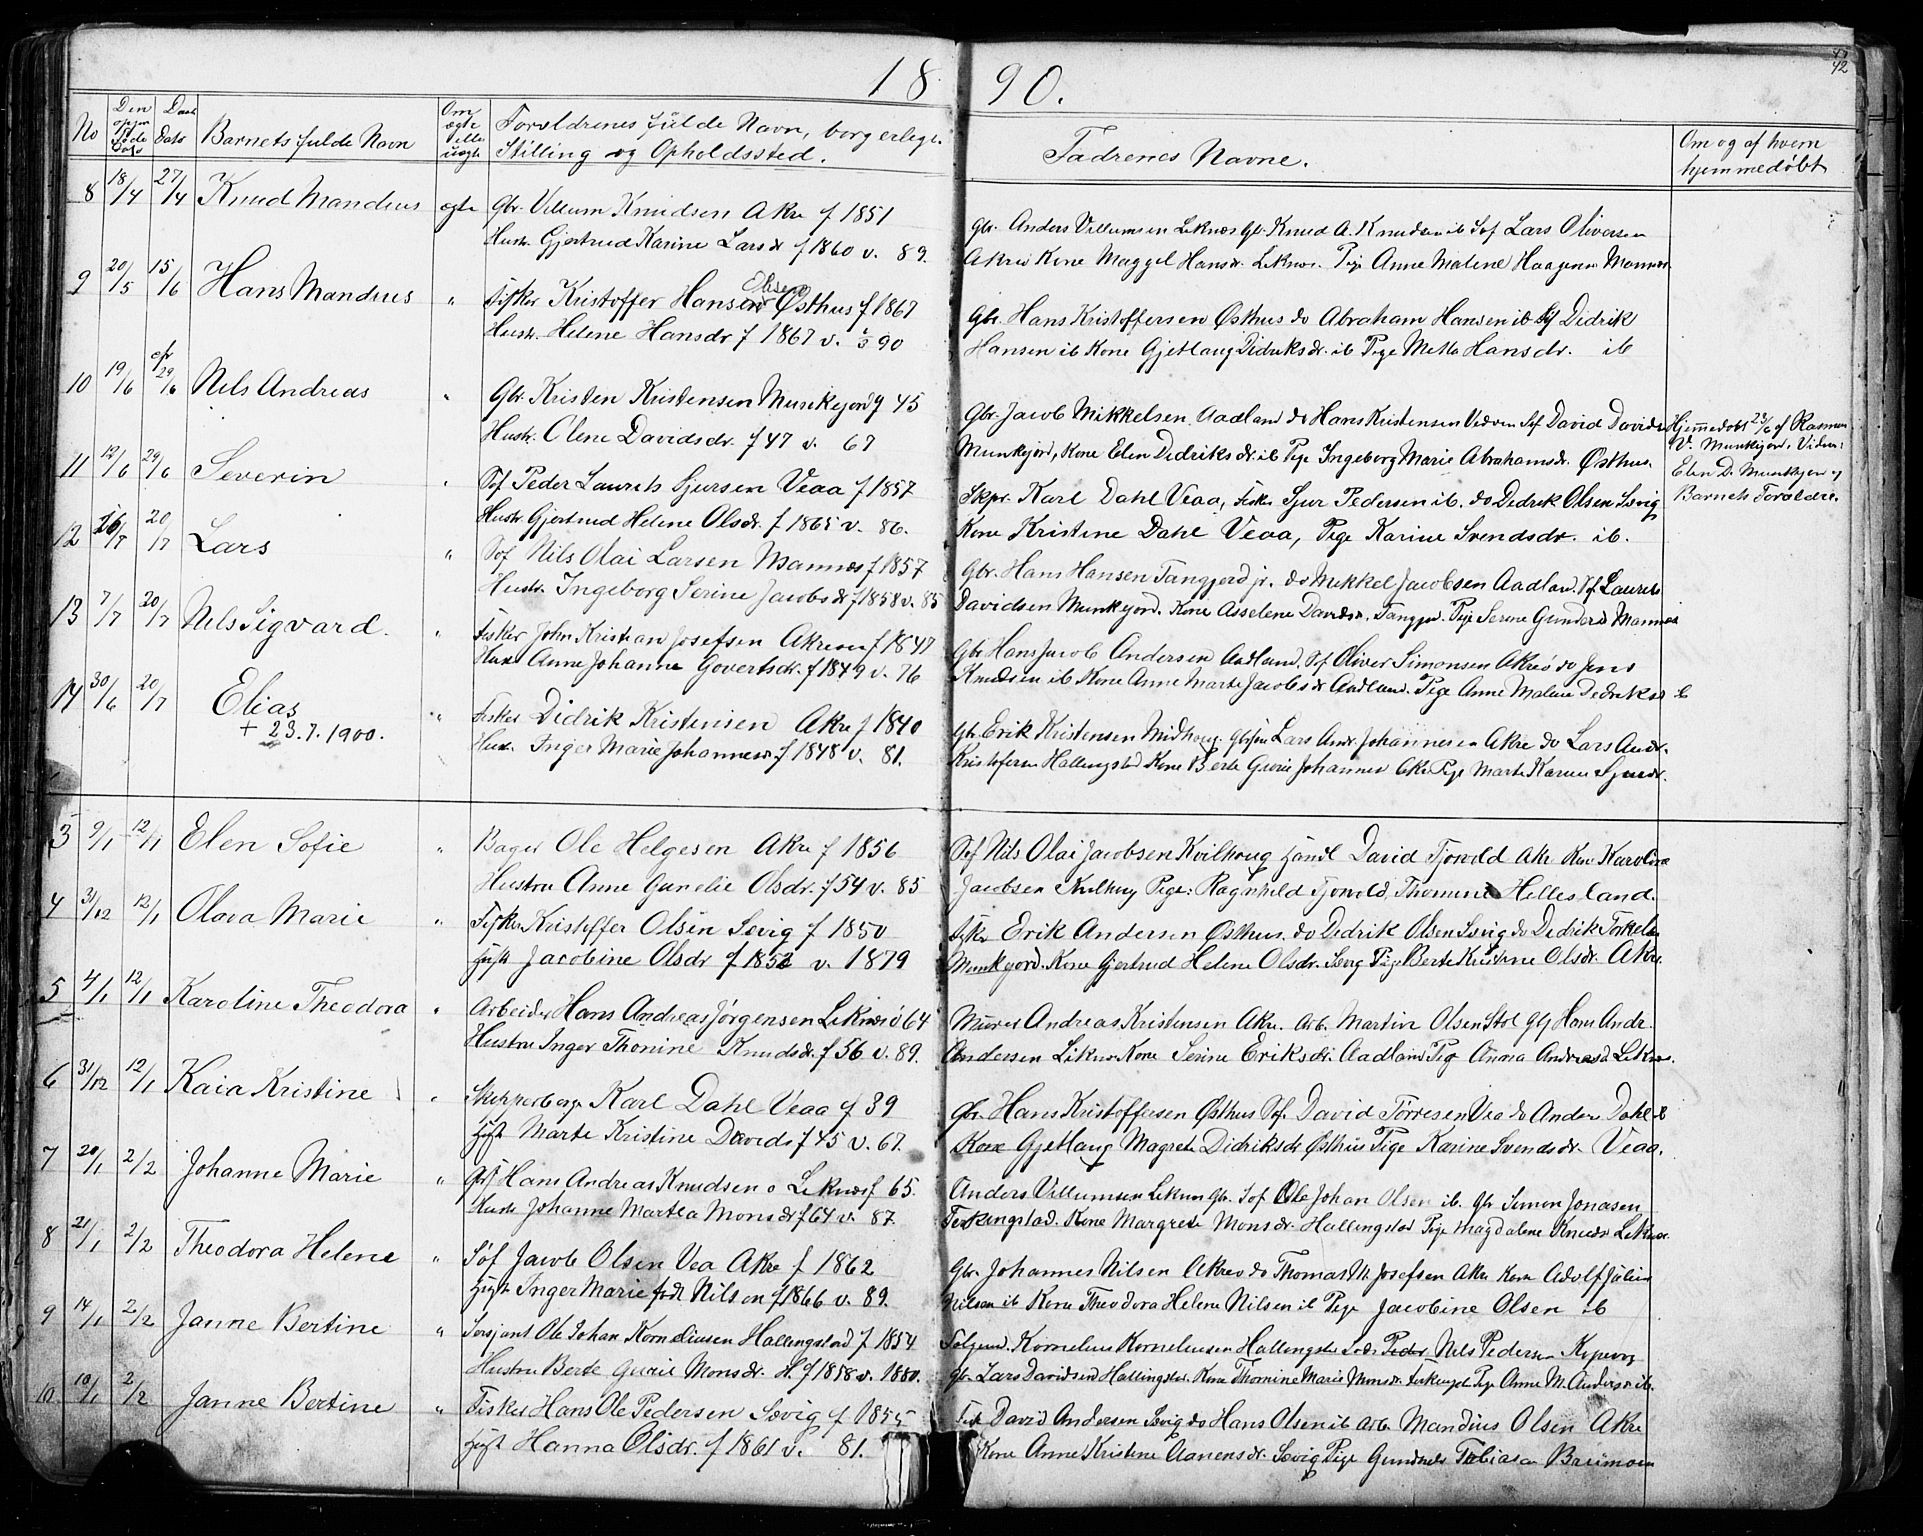 18 90.
42
No
Barnets fulde Navn
Forældrenes fulde Navn, borgerlige
Stilling og Opholdssted.
Fadrenes Navne.
Om og af hvem
hjemmedøbt
8 18/4 27/4 Knud Mandius ægte Gbr. Villum Knudsen Akre f 1851
Hustr. Gjertrud Karine Larsdr f 1860 v. 89.
Gbr. Anders Villumsen Leknes Gb. Knud A. Knudsen ib Søf Lars Oliversen
Akre Kone Maggel Hansdr. Leknes. Pige Anne Malene Haagens Mannes
9 20/5 15/6 Hans Mandius " Fisker Kristoffer Hansen Østhus f 1867
Hustr. Helene Hansdr f 1867 v. 90
Gbr. Hans Kristoffersen Østhus do Abraham Hansen ib Søf Didrik
Hansen ib Kone Gjethaug Didriksdr. ib Pige Metta Hansdr. ib
10 19/6 29/6 Nils Andreas " Gbr. Kristen Kristensen Munkejord f 45
Hustr. Olene Davidsdr. f 47 v. 67
Gbr. Jacob Mikkelsen Aadland do Hans Kristensen Søf David Davidsen
Munkejord, Kone Elen Didriksdr. ib Pige Ingeborg Marie Abrahamsdr. Østhus.
Hjemmedøbt 23/6 af Rasmus
V. Munkejord. Vidner:
Elen D. Munkejord og
Barnets Forældre.
11 12/6 29/6 Severin " Søf Peder Laurits Sjursen Veaa f 1857
Hustr. Gjertrud Helene Olsdr. f 1865 v. 86.
Skpr. Karl Dahl Veaa, Fisker Sjur Pedersen ib. do Didrik Olsen Sævig
Kone Kristine Dahl Veaa, Pige Karine Svendsdr. ib.
12 20/7 Lars " Søf Nils Olai Larsen Mannes f 1857
Hustr. Ingeborg Serine Jacobsdr f 1858 v. 85
Gbr. Hans Hansen Tangjerd jr. do Mikkel Jacobsen Aadland. Søf Laurits
Davidsen Munkejord. Kone Asselene Davidsdr. Tangjerd. Pige Serene Gundersd Mannes
13 7/7 20/7 Nils Sigvard. " Fisker John Kristian Josefsen Akre f 1847
Hustr Anne Johanne Govertsdr. f 1849 v. 76
Gbr Hans Jacob Andersen Aadland. Søf Oliver Simonsen Akre do Jens
Knudsen ib Kone Anne Marte Jacobsdr Aadland. Pige Anne Malene Didriksd ib
14 30/6 20/7 Elias " Fisker Didrik Kristensen Akre f 1840
+ 23.7.1900.
Hustr. Inger Marie Johannesdr. f 1848 v. 81.
Gbr. Erik Kristensen Midhaug. Lars Andr. Johannesen Akre do Lars Andr.
Kristofersen Hallingstad Kone Berte Gurie Johannesd Akre Pige Marte Karine Sjursdr.
3 9/1 12/1 Elen Sofie " Bager Ole Helgesen Akre f 1856
Hustru Anne Gurelie Olsdr. f 54 v. 85
Søf Nils Olai Jacobsen Kvilhaug Handl David Tjosvold Akr. Kone Karoline
Jacobsen Kvilhaug Pige: Ragnhild Tjosvold, Thomine Hellesland.
4 31/12 12/1 Olava Marie " Fisker Kristoffer Olsen Sævig f 1850
Hust Jacobine Olsdr f 1852 v. 1879
Fisker Erik Andersen Østhus. do Didrik Olsen Sævig do Didrik Torkelsen
Munkejord. Kone Gjertrud Helene Olsdr. Sævig Pige Berte Kristine Olsdr. Akre.
5 4/1 12/1 Karoline Theodora " Arbeider Hans Andreas Jørgensen Leknes 64
Hustru Inger Thonine Knudsdr. f 56 v. 89.
Murer Andreas Kristensen Akre. Arb. Martin Olsen Stol Gbf Hans Andr.
Andersen Leknes Kone Serine Eriksdr. Aadland Pig Anna Andreasd Leknes.
6 31/12 12/1 Kaia Kristine " Skipperborger Karl Dahl Veaa f 39
Hust Marte Kristine Davids f 45 v. 67.
Gbr. Hans Kristoffersen Østhus Søf. David Tørresen Vea do Anders Dahl ib
Kone Gjethaug Magrete Didriksdr Østhus Pige Karine Svendsdr. Veaa.
7 20/1 2/2 Johanne Marie " Gbf Hans Andreas Knudsen Leknes f 65.
Hustr Johanne Martea Monsdr f 64 v. 87.
Anders Villumsen Leknes Gbr. Søf Ole Johan Olsen ib. Gbr Simon Jonasen
Ferkingstad. Kone Margrete Monsdr. Hallingstad Pige Magdalene Knudsdr Leknes
8 21/1 2/2 Theodora Helene " Søf Jacob Olsen Vea Akre f 1862
Hust Inger Marie Nilsen f 1866 v. 89.
Gbr. Johannes Nilsen Akre do Thomas M. Josefsen Akre Kone Adolf Julius
Nilsen ib Kone Theodora Helene Nilsen ib Pige Jacobine Olsen ib
9 14/1 2/2 Janne Bertine " Sersjant Ole Johan Korneliusen Hallingstad f 1854
Hustru Berte Gurie Monsdr. H. f 1858 v. 1880.
Kornelius Korneliusen Hallingstad Nils Pedersen
Gbr. Lars Davidsen Hallingstad. Kone Thomine Marie Monsdr. Ferkingst Pige Anne M. Andersdr ib.
10. 10/1 2/2 Janne Bertine " Fisker Hans Ole Pedersen Sævig f 1855
Hust Hanna Olsdr. f 1861 v. 81.
Fisk David Andersen Sævig do Hans Olsen ib Arb. Mandius Olsen Akre
Kone Anne Kristine Aanensdr. Sævig Pige Tobiasen